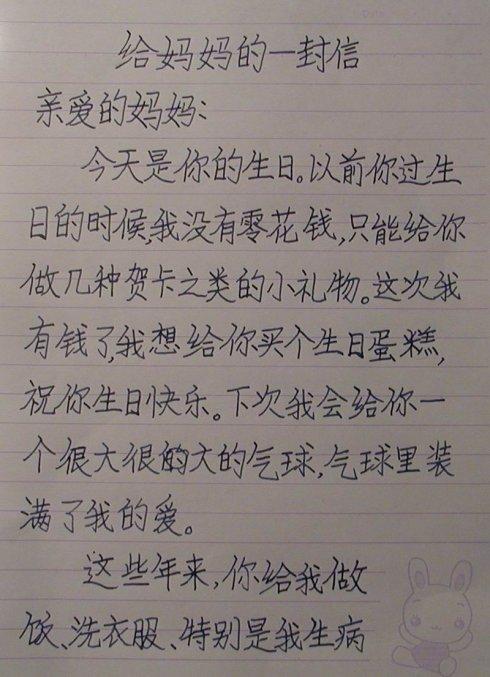 给妈妈的一封信
亲爱的妈妈:
今天是你的生日。以前你过生
日的时候,我没有零花钱,只能给你
做几种贺卡之类的小礼物。这次我
有钱了,我想给你买个生日蛋糕,
祝你生日快乐。下次我会给你一
个很大很的大的气球,气球里装
满了我的爱。
这些年来,你给我做
饭、洗衣服、特别是我生病